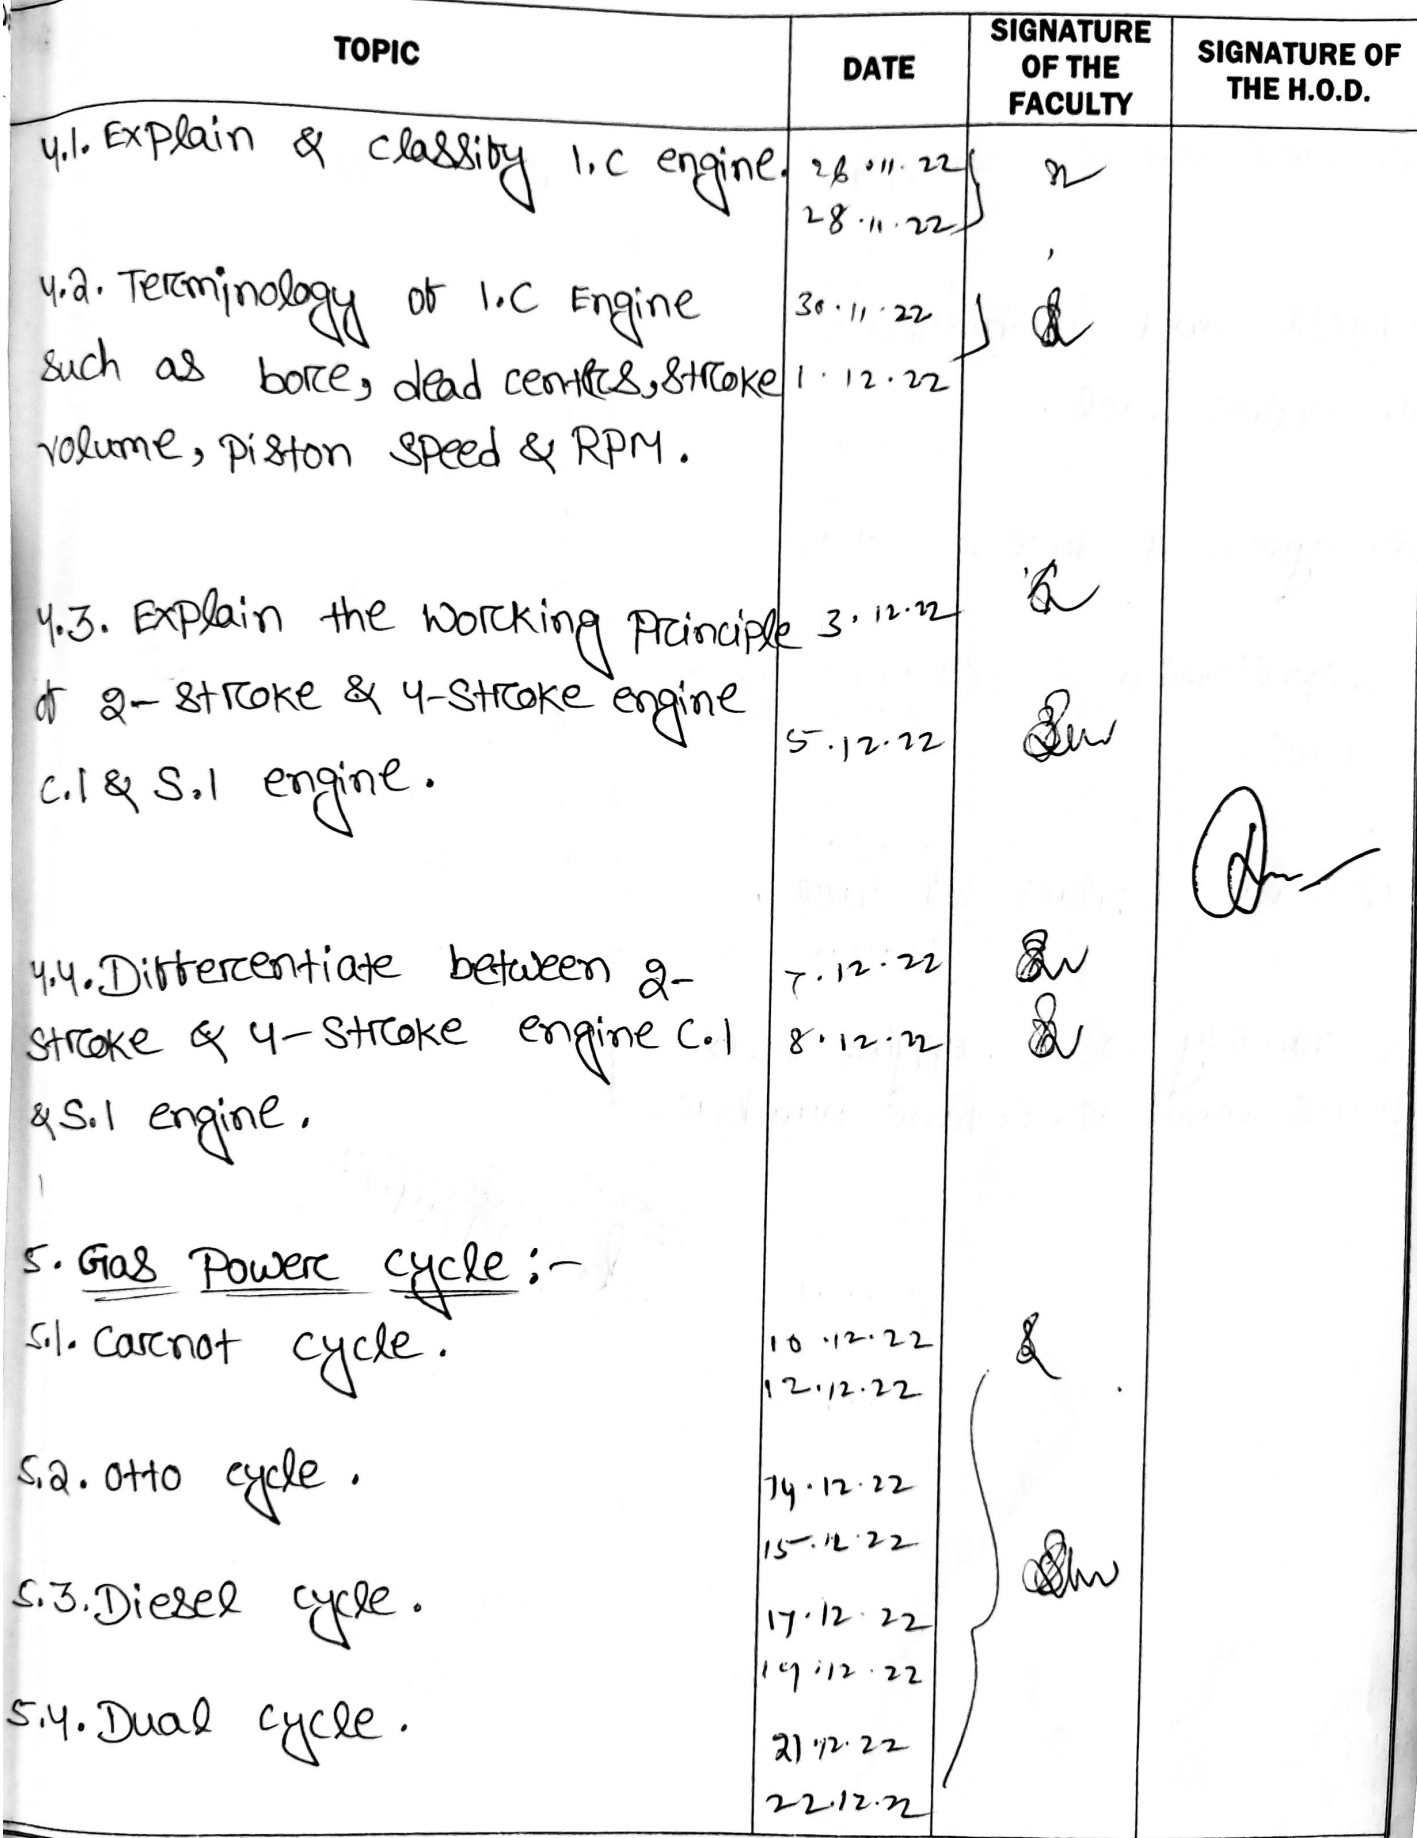 TOPIC DATE SIGNATURE OF THE FACULTY SIGNATURE OF THE H.O.D.
4.1. Explain & classify I.C engine. 26.11.22
28.11.22
4.2. Terminology of I.C Engine 30.11.22
such as bore, dead centres, stroke 1.12.22
volume, piston speed & RPM.
4.3. Explain the working principle 3.12.22
of 2-stroke & 4-stroke engine
5.12.22
C.I & S.I engine.
4.4. Differentiate between 2- 7.12.22
stroke & 4-stroke engine C.I 8.12.22
& S.I engine.
5. Gas Power cycle :-
5.1. Carnot cycle. 10.12.22
12.12.22
5.2. Otto cycle. 14.12.22
15.12.22
5.3. Diesel cycle. 17.12.22
19.12.22
5.4. Dual cycle. 21.12.22
22.12.22